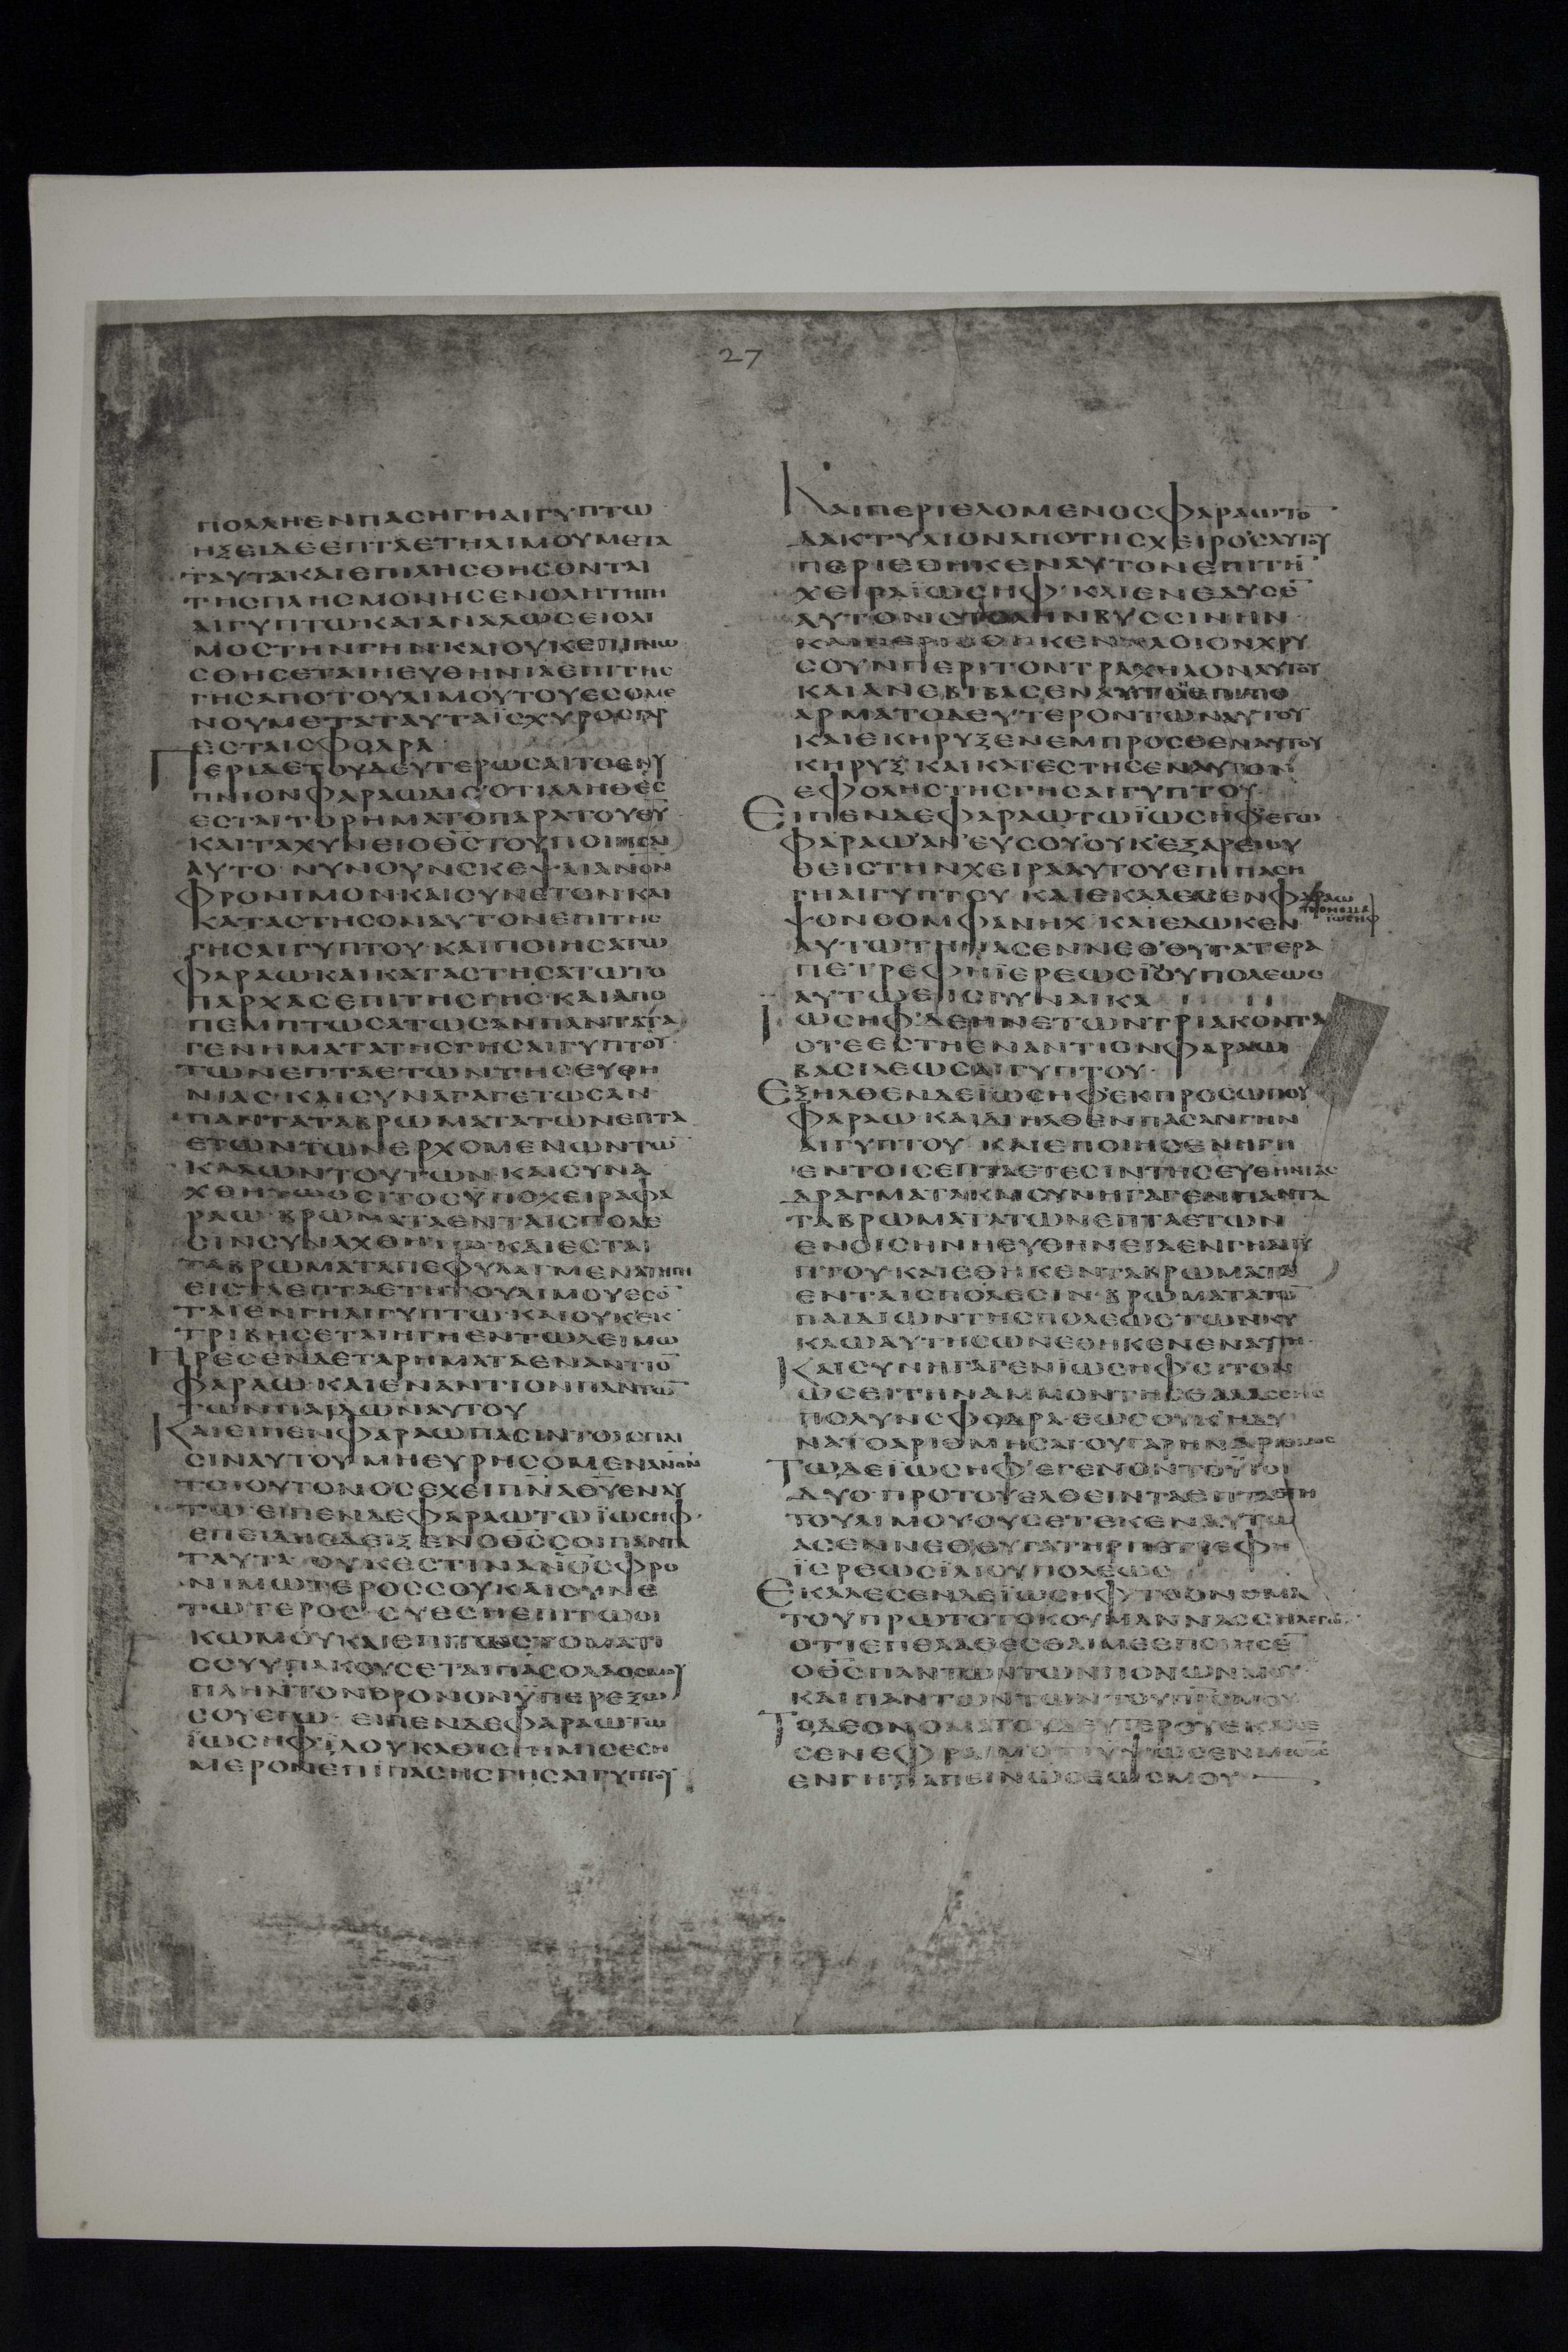 27
ΠΟΛΛΗΕΝΠΑCΗΓΗΑΙΓΥΠΤΩ
ΗΞΕΙΔΕΕΠΤΑΕΤΗΛΙΜΟΥΜΕΤΑ
ΤΑΥΤΑΚΑΙΕΠΙΛΗCΘΗCΟΝΤΑΙ
ΤΗCΠΛΗCΜΟΝΗCΕΝΟΛΗΤΗΓΗ
ΑΙΓΥΠΤΩ·ΚΑΙΑΝΑΛΩCΕΙΟΛΙ
ΜΟCΤΗΝΓΗΝΚΑΙΟΥΚΕΠΙΓΝΩ
CΘΗCΕΤΑΙΗΕΥΘΗΝΙΑΕΠΙΤΗC
ΓΗCΑΠΟΤΟΥΛΙΜΟΥΤΟΥΕCΟΜΕ
ΝΟΥΜΕΤΑΤΑΥΤΑΪCΧΥΡΟCΓΑΡ
ΕCΤΑΙCΦΟΔΡΑ
ΠΕΡΙΔΕΤΟΥΔΕΥΤΕΡΩCΑΙΤΟΕΝΥ
ΠΝΙΟΝΦΑΡΑΩΔΙC·ΟΤΙΑΛΗΘΕC
ΕCΤΑΙΤΟΡΗΜΑΤΟΠΑΡΑΤΟΥΘ̅Υ̅
ΚΑΙΤΑΧΥΝΕΙΟΘ̅C̅ΤΟΥΠΟΙΗCΑΙ
ΑΥΤΟ·ΝΥΝΟΥΝCΚΕΨΑΙΑΝ̅Ο̅Ν̅
ΦΡΟΝΙΜΟΝ·ΚΑΙCΥΝΕΤΟΝ·ΚΑΙ
ΚΑΤΑCΤΗCΟΝΑΥΤΟΝΕΠΙΤΗC
ΓΗCΑΙΓΥΠΤΟΥ·ΚΑΙΠΟΙΗCΑΤΩ
ΦΑΡΑΩ·ΚΑΙΚΑΤΑCΤΗCΑΤΩΤΟ
ΠΑΡΧΑCΕΠΙΤΗCΓΗC·ΚΑΙΑΠΟ
ΠΕΜΠΤΩCΑΤΩCΑΝΠΑΝΤΑΤΑ
ΓΕΝΗΜΑΤΑΤΗCΓΗCΑΙΓΥΠΤΟΥ
ΤΩΝΕΠΤΑΕΤΩΝΤΗCΕΥΘΗ
ΝΙΑC·ΚΑΙCΥΝΑΓΑΓΕΤΩCΑΝ
ΠΑΝΤΑΤΑΒΡΩΜΑΤΑΤΩΝΕΠΤΑ
ΕΤΩΝΤΩΝΕΡΧΟΜΕΝΩΝΤΩ̅
ΚΑΛΩΝΤΟΥΤΩΝ·ΚΑΙCΥΝΑ
ΧΘΗΤΩΟCΙΤΟCΫΠΟΧΕΙΡΑΦΑ
ΡΑΩ·ΒΡΩΜΑΤΑΕΝΤΑΙCΠΟΛΕ
CΙΝCΥΝΑΧΘΗΤΩ·ΚΑΙΕCΤΑΙ
ΤΑΒΡΩΜΑΤΑΠΕΦΥΛΑΓΜΕΝΑΤΗΓΗ
ΕΙCΤΑΕΠΤΑΕΤΗΤΟΥΛΙΜΟΥΕCΟ̅
ΤΑΙΕΝΓΗΑΙΓΥΠΤΩ·ΚΑΙΟΥΚΕΚ
ΤΡΙΒΗCΕΤΑΙΗΓΗΕΝΤΩΛΕΙΜΩ
ΗΡΕCΕΝΔΕΤΑΡΗΜΑΤΑΕΝΑΝΤΙΟ̅
ΦΑΡΑΩ·ΚΑΙΕΝΑΝΤΙΟΝΠΑΝΤΩ̅
ΤΩΝΠΑΙΔΩΝΑΥΤΟΥ
ΚΑΙΕΙΠΕΝΦΑΡΑΩΠΑCΙΝΤΟΙCΠΑΙ
CΙΝΑΥΤΟΥ·ΜΗΕΥΡΗCΟΜΕΝΑΝ̅Ο̅Ν̅
ΤΟΙΟΥΤΟΝΟCΕΧΕΙΠ̅Ν̅Α̅Θ̅Υ̅ΕΝΑΥ
ΤΩ·ΕΙΠΕΝΔΕΦΑΡΑΩΤΩΪΩCΗΦ·
ΕΠΕΙΔΗΕΔΕΙΞΕΝΟΘ̅C̅CΟΙΠΑΝΤΑ
ΤΑΥΤΑ·ΟΥΚΕCΤΙΝΑΝ̅Ο̅C̅ΦΡΟ
ΝΙΜΩΤΕΡΟCCΟΥΚΑΙCΥΝΕ
ΤΩΤΕΡΟC·CΥΕCΗΕΠΙΤΩΟΙ
ΚΩΜΟΥΚΑΙΕΠΙΤΩCΤΟΜΑΤΙ
CΟΥΥΠΑΚΟΥCΕΤΑΙΠΑCΟΛΑΟCΜΟΥ
ΠΛΗΝΤΟΝΘΡΟΝΟΝΫΠΕΡΕΞΩ
CΟΥΕΓΩ·ΕΙΠΕΝΔΕΦΑΡΑΩΤΩ
ΪΩCΗΦ·ΪΔΟΥΚΑΘΙCΤΗΜΙCΕCΗ
ΜΕΡΟΝΕΠΙΠΑCΗCΓΗCΑΙΓΥΠΤΟΥ
ΚΑΙΠΕΡΙΕΛΟΜΕΝΟCΦΑΡΑΩΤΟ̅
ΔΑΚΤΥΛΙΟΝΑΠΟΤΗCΧΕΙΡΟCΑΥΤΟΥ
ΠΕΡΙΕΘΗΚΕΝΑΥΤΟΝΕΠΙΤΗ̅
ΧΕΙΡΑΪΩCΗΦ·ΚΑΙΕΝΕΔΥCΕ̅
ΑΥΤΟΝCΤΟΛΗΝΒΥCCΙΝΗΝ
ΚΑΙΠΕΡΙΕΘΗΚΕΝΚΛΟΙΟΝΧΡΥ
CΟΥΝΠΕΡΙΤΟΝΤΡΑΧΗΛΟΝΑΥΤΟΥ
ΚΑΙΑΝΕΒΙΒΑCΕΝΑΥΤΟΝΕΠΙΤΟ
ΑΡΜΑΤΟΔΕΥΤΕΡΟΝΤΩΝΑΥΤΟΥ
ΚΑΙΕΚΗΡΥΞΕΝΕΜΠΡΟCΘΕΝΑΥΤΟΥ
ΚΗΡΥΞ·ΚΑΙΚΑΤΕCΤΗCΕΝΑΥΤΟΝ
ΕΦΟΛΗCΤΗCΓΗCΑΙΓΥΠΤΟΥ·
ΕΙΠΕΝΔΕΦΑΡΑΩΤΩΪΩCΗΦ·ΕΓΩ
ΦΑΡΑΩ·ΑΝΕΥCΟΥΟΥΚΕΞΑΡΕΙΟΥ
ΘΕΙCΤΗΝΧΕΙΡΑΑΥΤΟΥΕΠΙΠΑCΗ
ΓΗΑΙΓΥΠΤΟΥ·ΚΑΙΕΚΑΛΕCΕΝΦΑΡΑΩ
ΤΟΟΝΟΜΑ
ΪΩCΗΦ
ΨΟΝΘΟΜΦΑΝΗΧ·ΚΑΙΕΔΩΚΕΝ
ΑΥΤΩΤΗΝΑCΕΝΝΕΘΘΥΓΑΤΕΡΑ
ΠΕΤΡΕΦΗΪΕΡΕΩCΪΟΥΠΟΛΕΩC
ΑΥΤΩΕΙCΓΥΝΑΙΚΑ
ΙΩCΗΦΔΕΗΝΕΤΩΝΤΡΙΑΚΟΝΤΑ
ΟΤΕΕCΤΗΕΝΑΝΤΙΟΝΦΑΡΑΩ
ΒΑCΙΛΕΩCΑΙΓΥΠΤΟΥ·
ΕΞΗΛΘΕΝΔΕΪΩCΗΦΕΚΠΡΟCΩΠΟΥ
ΦΑΡΑΩ·ΚΑΙΔΙΗΛΘΕΝΠΑCΑΝΓΗΝ
ΑΙΓΥΠΤΟΥ·ΚΑΙΕΠΟΙΗCΕΝΗΓΗ
ΕΝΤΟΙCΕΠΤΑΕΤΕCΙΝΤΗCΕΥΘΗΝΙΑC
ΔΡΑΓΜΑΤΑ·ΚΑΙCΥΝΗΓΑΓΕΝΠΑΝΤΑ
ΤΑΒΡΩΜΑΤΑΤΩΝΕΠΤΑΕΤΩΝ
ΕΝΟΙCΗΝΗΕΥΘΗΝΕΙΑΕΝΓΗΑΙΓΥ
ΠΤΟΥ·ΚΑΙΕΘΗΚΕΝΤΑΒΡΩΜΑΤΑ
ΕΝΤΑΙCΠΟΛΕCΙΝ·ΒΡΩΜΑΤΑΤΩ̅
ΠΑΙΔΙΩΝΤΗCΠΟΛΕΩCΤΩΝΚΥ
ΚΛΩΑΥΤΗCΩΝΕΘΗΚΕΝΕΝΑΥΤΗ·
ΚΑΙCΥΝΗΓΑΓΕΝΪΩCΗΦCΙΤΟΝ
ΩCΕΙΤΗΝΑΜΜΟΝΤΗCΘΑΛΑCCΗC
ΠΟΛΥΝCΦΟΔΡΑ·ΕΩCΟΥΚΗΔΥ
ΝΑΤΟΑΡΙΘΜΗCΑΙΟΥΓΑΡΗΝΑΡΙΘΜΟC
ΤΩΔΕΪΩCΗΦΕΓΕΝΟΝΤΟΫΙΟΙ
ΔΥΟ·ΠΡΟΤΟΥΕΛΘΕΙΝΤΑΕΠΤΑΕΤΗ
ΤΟΥΛΙΜΟΥ·ΟΥCΕΤΕΚΕΝΑΥΤΩ
ΑCΕΝΝΕΘΘΥΓΑΤΗΡΠΕΤΡΕΦΗ
ΪΕΡΕΩCΪΛΙΟΥΠΟΛΕΩC
ΕΚΑΛΕCΕΝΔΕΪΩCΗΦΤΟΟΝΟΜΑ
ΤΟΥΠΡΩΤΟΤΟΚΟΥΜΑΝΝΑCCΗΛΕΓΩ̅·
ΟΤΙΕΠΕΛΑΘΕCΘΑΙΜΕΕΠΟΙΗCΕ̅
ΟΘ̅C̅ΠΑΝΤΩΝΤΩΝΠΟΝΩΝΜΟΥ·
ΚΑΙΠΑΝΤΩΝΤΩΝΤΟΥΠ̅Ρ̅C̅ΜΟΥ
ΤΟΔΕΟΝΟΜΑΤΟΥΔΕΥΤΕΡΟΥΕΚΑΛΕ
CΕΝΕΦΡΑΙΜ·ΟΤΙΥΨΩCΕΝΜΕΟΘ̅C̅
ΕΝΓΗΤΑΠΕΙΝΩCΕΩCΜΟΥ